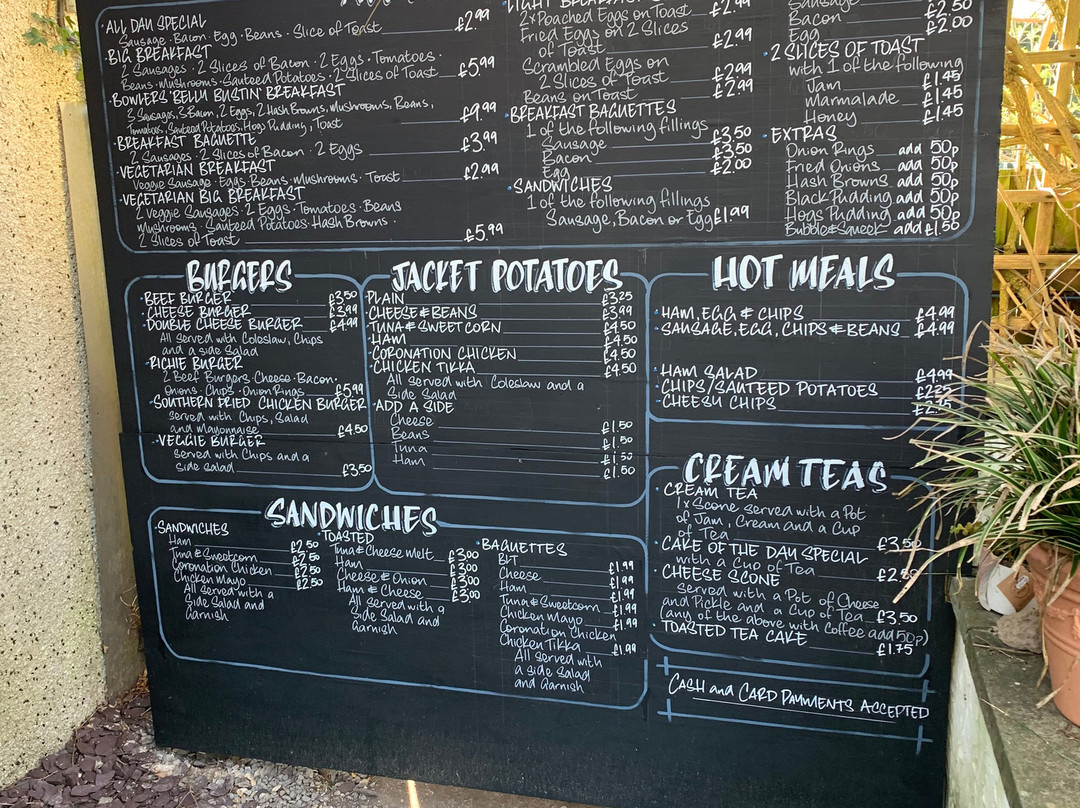 ALL DAY SPECIAL
Sausage · Bacon · Egg · Beans · Slice of Toast £2.99
BIG BREAKFAST
2 Sausages · 2 Slices of Bacon · 2 Eggs · Tomatoes ·
Beans · Mushrooms · Sauteed Potatoes · 2 Slices of Toast £5.99
BOWLERS BELLY BUSTIN' BREAKFAST
3 Sausages, 3 Bacon, 2 Eggs, 2 Hash Browns, Mushrooms, Beans,
Tomatoes, Sauteed Potatoes, Hogs Pudding, Toast £9.99
BREAKFAST BAGUETTE
2 Sausages · 2 Slices of Bacon · 2 Eggs £3.99
VEGETARIAN BREAKFAST
Veggie Sausage · Eggs · Beans · Mushrooms · Toast £2.99
VEGETARIAN BIG BREAKFAST
2 Veggie Sausages · 2 Eggs · Tomatoes · Beans
Mushrooms · Sauteed Potatoes · Hash Browns ·
2 Slices of Toast £5.99
LIGHT BREAKFAST
2x Poached Eggs on Toast £2.99
Fried Eggs on 2 Slices
of Toast £2.99
Scrambled Eggs on
2 Slices of Toast £2.99
Beans on Toast £2.99
BREAKFAST BAGUETTES
1 of the following fillings
Sausage £3.50
Bacon £3.50
Egg £2.00
SANDWICHES
1 of the following fillings
Sausage, Bacon or Egg £1.99
Sausage £2.50
Bacon £2.00
Egg
2 SLICES OF TOAST
with 1 of the following
Jam £1.45
Marmalade £1.45
Honey £1.45
EXTRAS
Onion Rings add 50p
Fried Onions add 50p
Hash Browns add 50p
Black Pudding add 50p
Hogs Pudding add 50p
Bubble & Squeek add £1.50
BURGERS
BEEF BURGER £3.50
CHEESE BURGER £3.99
DOUBLE CHEESE BURGER £4.99
All served with Coleslaw, Chips
and a side Salad
RICHIE BURGER
2 Beef Burgers · Cheese · Bacon ·
Onions · Chips · Onion Rings £5.99
SOUTHERN FRIED CHICKEN BURGER
served with Chips, Salad
and Mayonnaise £4.50
VEGGIE BURGER
served with Chips and a
side salad £3.50
JACKET POTATOES
PLAIN £3.25
CHEESE & BEANS £3.99
TUNA & SWEETCORN £4.50
HAM £4.50
CORONATION CHICKEN £4.50
CHICKEN TIKKA £4.50
All served with Coleslaw and a
Side Salad
ADD A SIDE
Cheese £1.50
Beans £1.50
Tuna £1.50
Ham £1.50
HOT MEALS
HAM, EGG & CHIPS £4.99
SAUSAGE, EGG, CHIPS & BEANS £4.99
HAM SALAD £4.99
CHIPS/SAUTEED POTATOES £2.25
CHEESY CHIPS
SANDWICHES
SANDWICHES
Ham £2.50
Tuna & Sweetcorn £2.50
Coronation Chicken £2.50
Chicken Mayo £2.50
All served with a
Side Salad and
Garnish
TOASTED
Tuna & Cheese Melt £3.00
Ham £3.00
Cheese & Onion £3.00
Ham & Cheese £3.00
All served with a
Side Salad and
garnish
BAGUETTES
BLT £1.99
Cheese £1.99
Ham £1.99
Tuna & Sweetcorn £1.99
Chicken Mayo £1.99
Coronation Chicken
Chicken Tikka £1.99
All served with
a side Salad
and Garnish
CREAM TEAS
CREAM TEA
1x Scone served with a Pot
of Jam, Cream and a Cup
of Tea £3.50
CAKE OF THE DAY SPECIAL
with a Cup of Tea
CHEESE SCONE
served with a Pot of Cheese
and Pickle and a Cup of Tea £3.50
(any of the above with Coffee add 50p)
TOASTED TEA CAKE £1.75
CASH and CARD PAYMENTS ACCEPTED